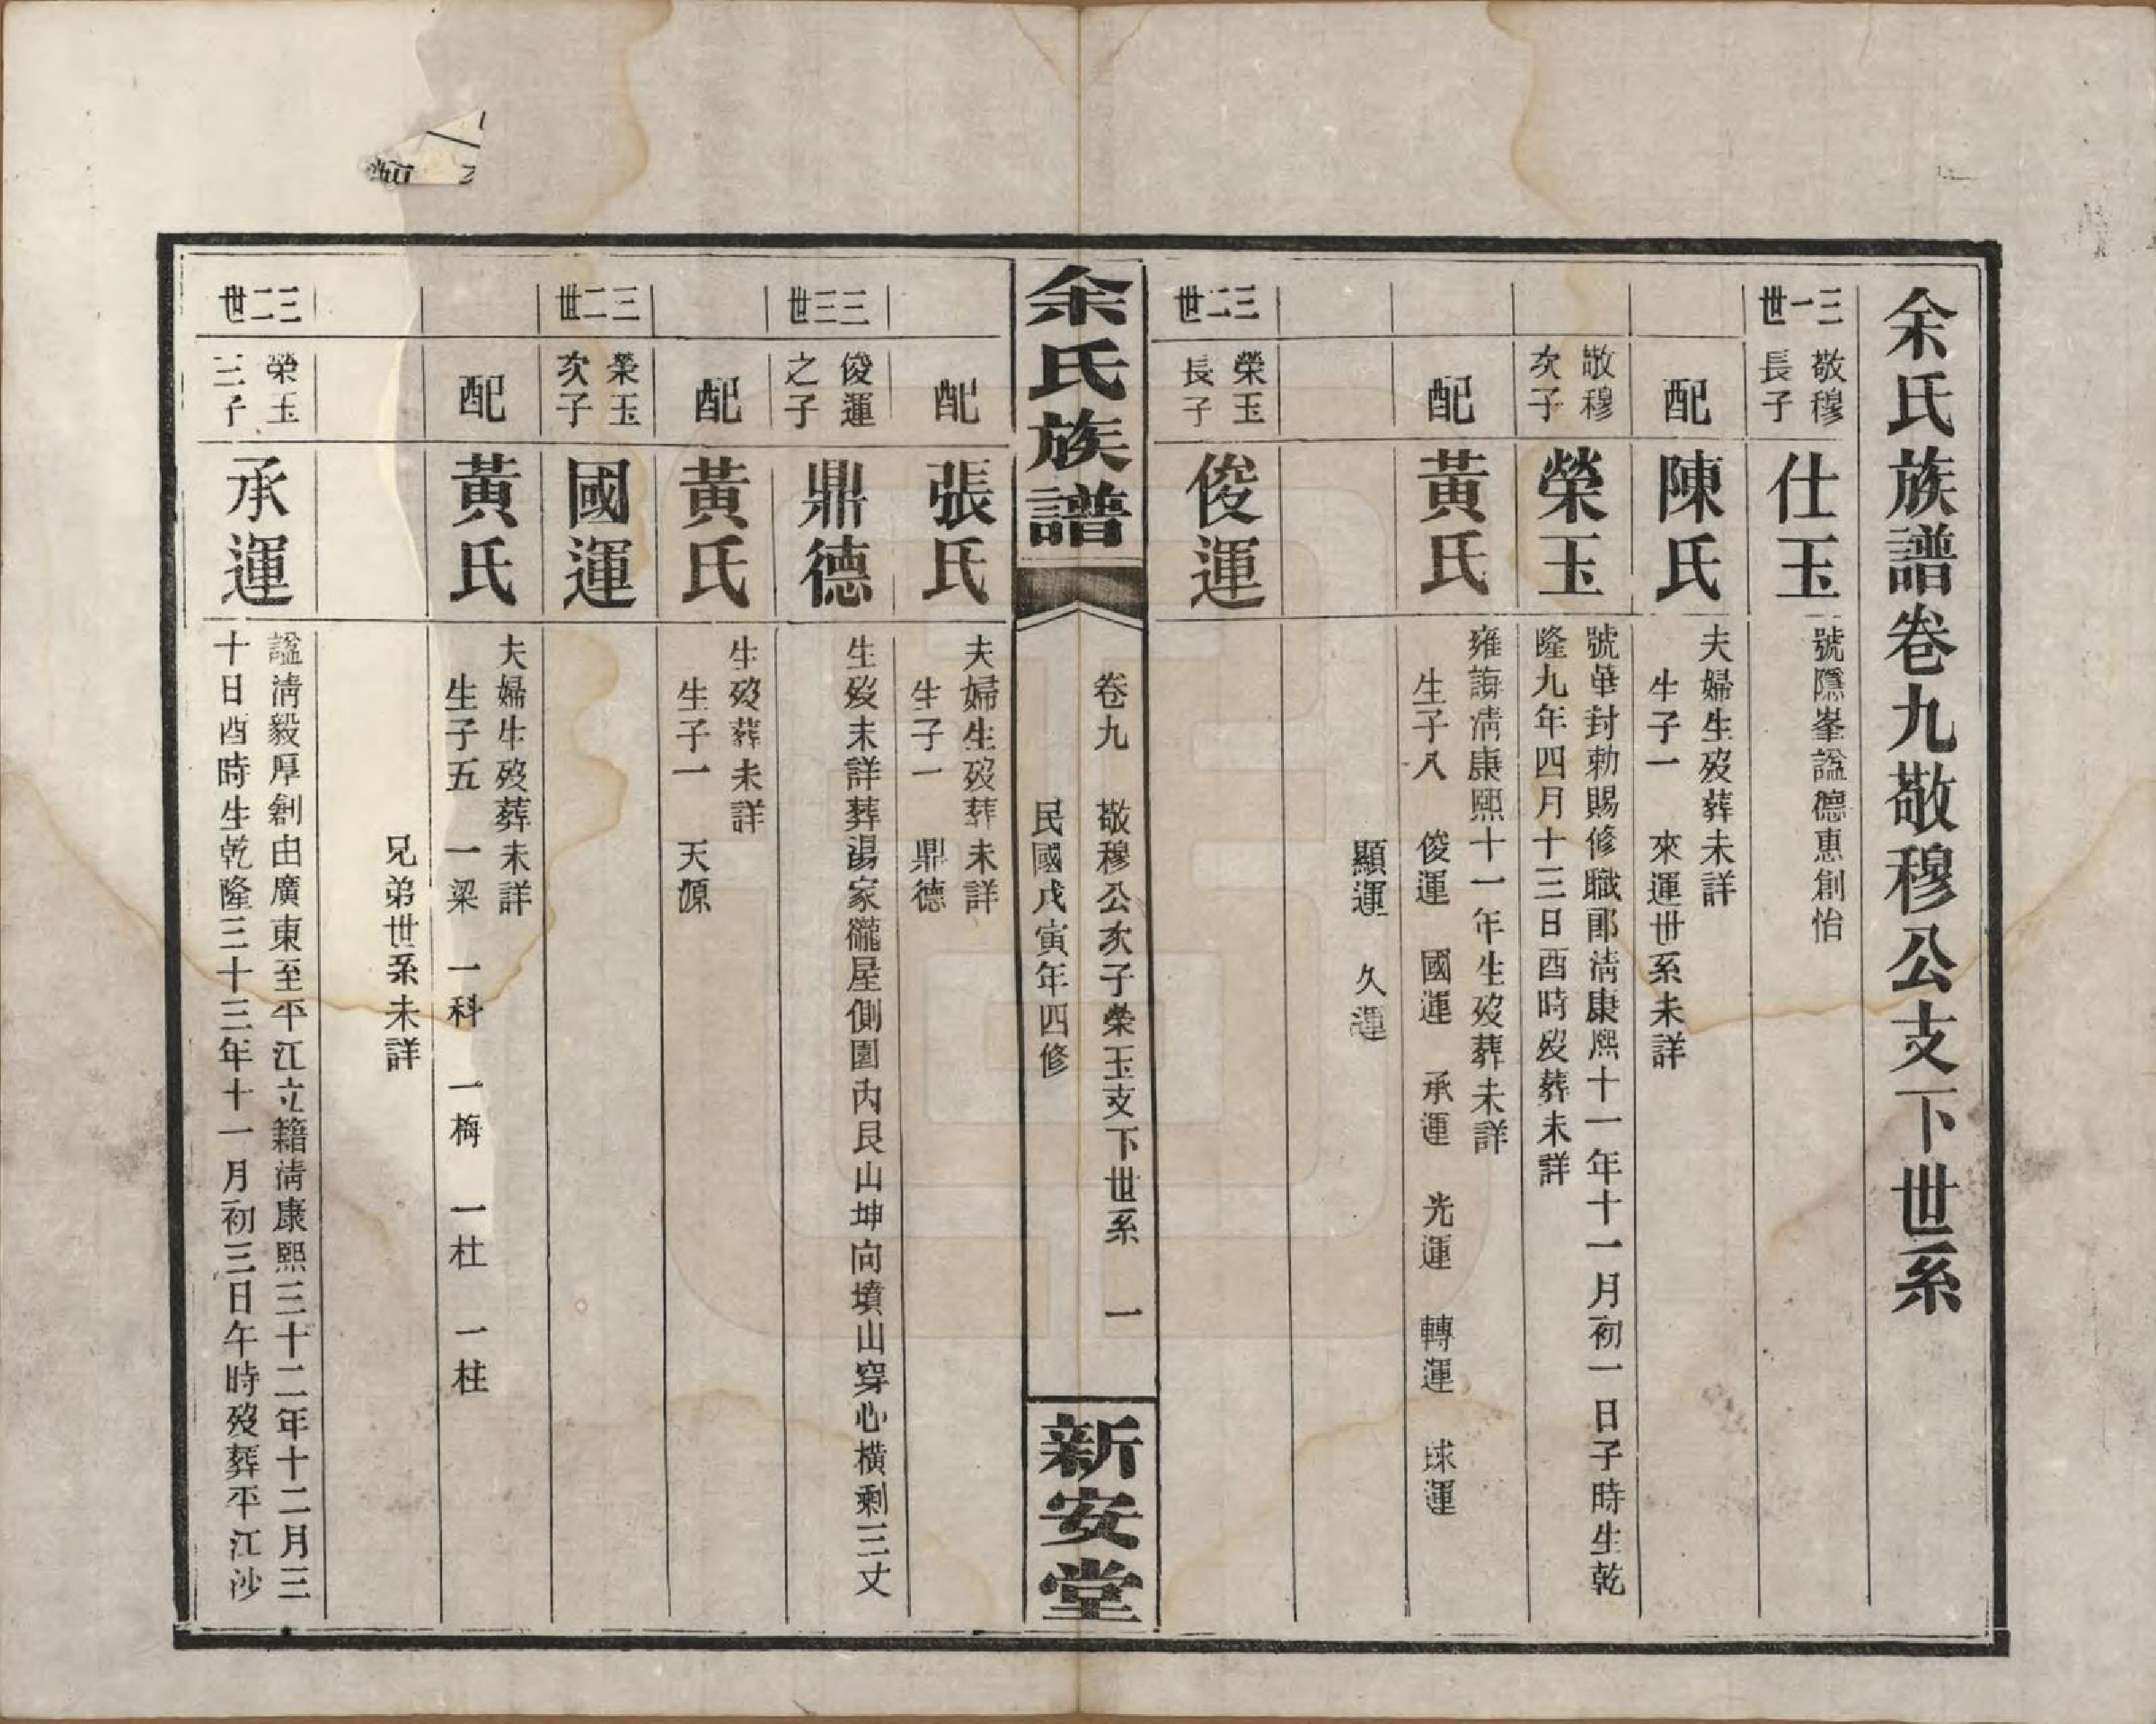 余氏族譜卷九敬穆公支下世系
三一世
敬穆長子
仕玉
號隱峯謚德惠創怡
配
陳氏
夫婦生歿葬未詳
生子一　來運世系未詳
敬穆次子
榮玉
號華封勅賜修職郎清康熙十一年十一月初一日子時生乾
隆九年四月十三日酉時歿葬未詳
配
黃氏
雍誨清康熙十一年生歿葬未詳
生子八　俊運　國運　承運　光運　轉運　球運
顯運　久運
三二世
榮玉長子
俊運
余氏族譜
卷九　敬穆公次子榮玉支下世系　一
民國戊寅年四修
新安堂
配
張氏
夫婦生歿葬未詳
生子一　鼎德
三三世
俊運之子
鼎德
生歿未詳葬湯家　屋側園內艮山坤向墳山穿心橫剩三丈
配
黃氏
生歿葬未詳
生子一　天源
三二世
榮玉次子
國運
配
黃氏
夫婦生歿葬未詳
生子五　一梁　一科　一梅　一杜　一柱
兄弟世系未詳
三二世
榮玉三子
承運
謚清毅厚創由廣東至平江立籍清康熙三十二年十二月三
十日酉時生乾隆三十三年十一月初三日午時歿葬平江沙